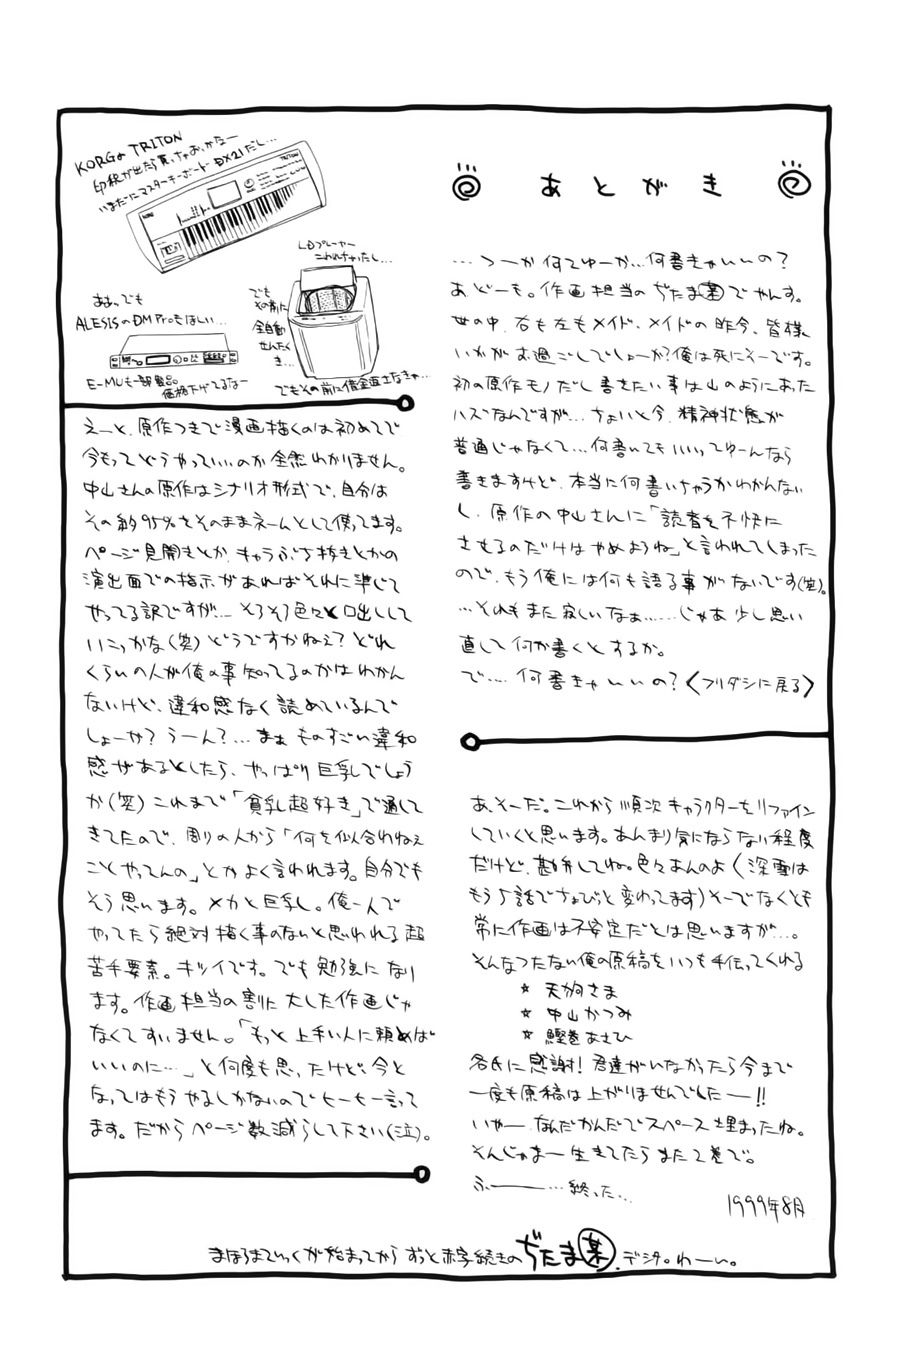 あとがき
…つーか何てゆーか…何書きゃいいの？
あどーも。作画担当のぢたま某でやんす。
世の中、右も左もメイド、メイドの昨今、皆様
いかがお過ごしでしょーか？俺は死にそーです。
初の原作モノだし書きたい事は山のようにあった
ハズなんですが…ちょいと今、精神状態が
普通じゃなくて…何書いてもいいってゆーんなら
書きますけど、本当に何書いちゃうかわかんない
し、原作の中山さんに「読者を不快に
させるのだけはやめようね」と言われてしまった
ので、もう俺には何も語る事がないです(笑)。
…それもまた寂しいなぁ……じゃあ少し思い
直して何か書くとするか。
で…何書きゃいいの？〈フリダシに戻る〉
KORGのTRITON
印税が出たら買っちゃおっかなー
いまだにマスターキーボードDX21だし…
LDプレーヤー
こわれちゃったし…
ああ、でも
ALESISのDM Proもほしい…
E-MUも一部製品
価格下げてるなー
でも
その前に
全自動
せんたく
き…
でもその前に借金返さなきゃ…
えーと、原作つきで漫画描くのは初めてで
今もってどうやっていいのか全然わかりません。
中山さんの原作はシナリオ形式で、自分は
その約95%をそのままネームとして使ってます。
ページ見開きとか、キャラぶち抜きとかの
演出面での指示があればそれに準じて
やってる訳ですが…そろそろ色々と口出しして
いこっかな(笑)どうですかねえ？どれ
くらいの人が俺の事知ってるのかはわかん
ないけど、違和感なく読めているんで
しょーか？うーん？…まぁものすごい違和
感があるとしたら、やっぱり巨乳でしょう
か(笑)これまで「貧乳超好き」で通して
きてたので、周りの人から「何を似合わねえ
ことやってんの」とかよく言われます。自分でも
そう思います。メカと巨乳。俺一人で
やってたら絶対描く事のないと思われる超
苦手要素。キツイです。でも勉強になり
ます。作画担当の割に大した作画じゃ
なくてすいません。「もっと上手い人に頼めば
いいのに…」と何度も思ったけど、今と
なってはもうやるしかないのでヒーヒー言って
ます。だからページ数減らして下さい(泣)。
あそーだ。これから順次キャラクターをリファイン
していくと思います。あんまり気にならない程度
だけど、勘弁してね。色々あんのよ(深雪は
もう5話でちょびっと変わってます)そーでなくとも
常に作画は不安定だとは思いますが…。
そんなつたない俺の原稿をいつも手伝ってくれる
☆ 天朔さま
☆ 中山かつみ
☆ 鰹巻あさひ
各氏に感謝！君達がいなかったら今まで
一度も原稿は上がりませんでしたー!!
いやーなんだかんだでスペース埋まったね。
そんじゃまー生きてたらまた2巻で。
ふー…終った…
1999年8月
まほろまてぃっくが始まってからずっと赤字続きのぢたま某.デシタ。わーい。